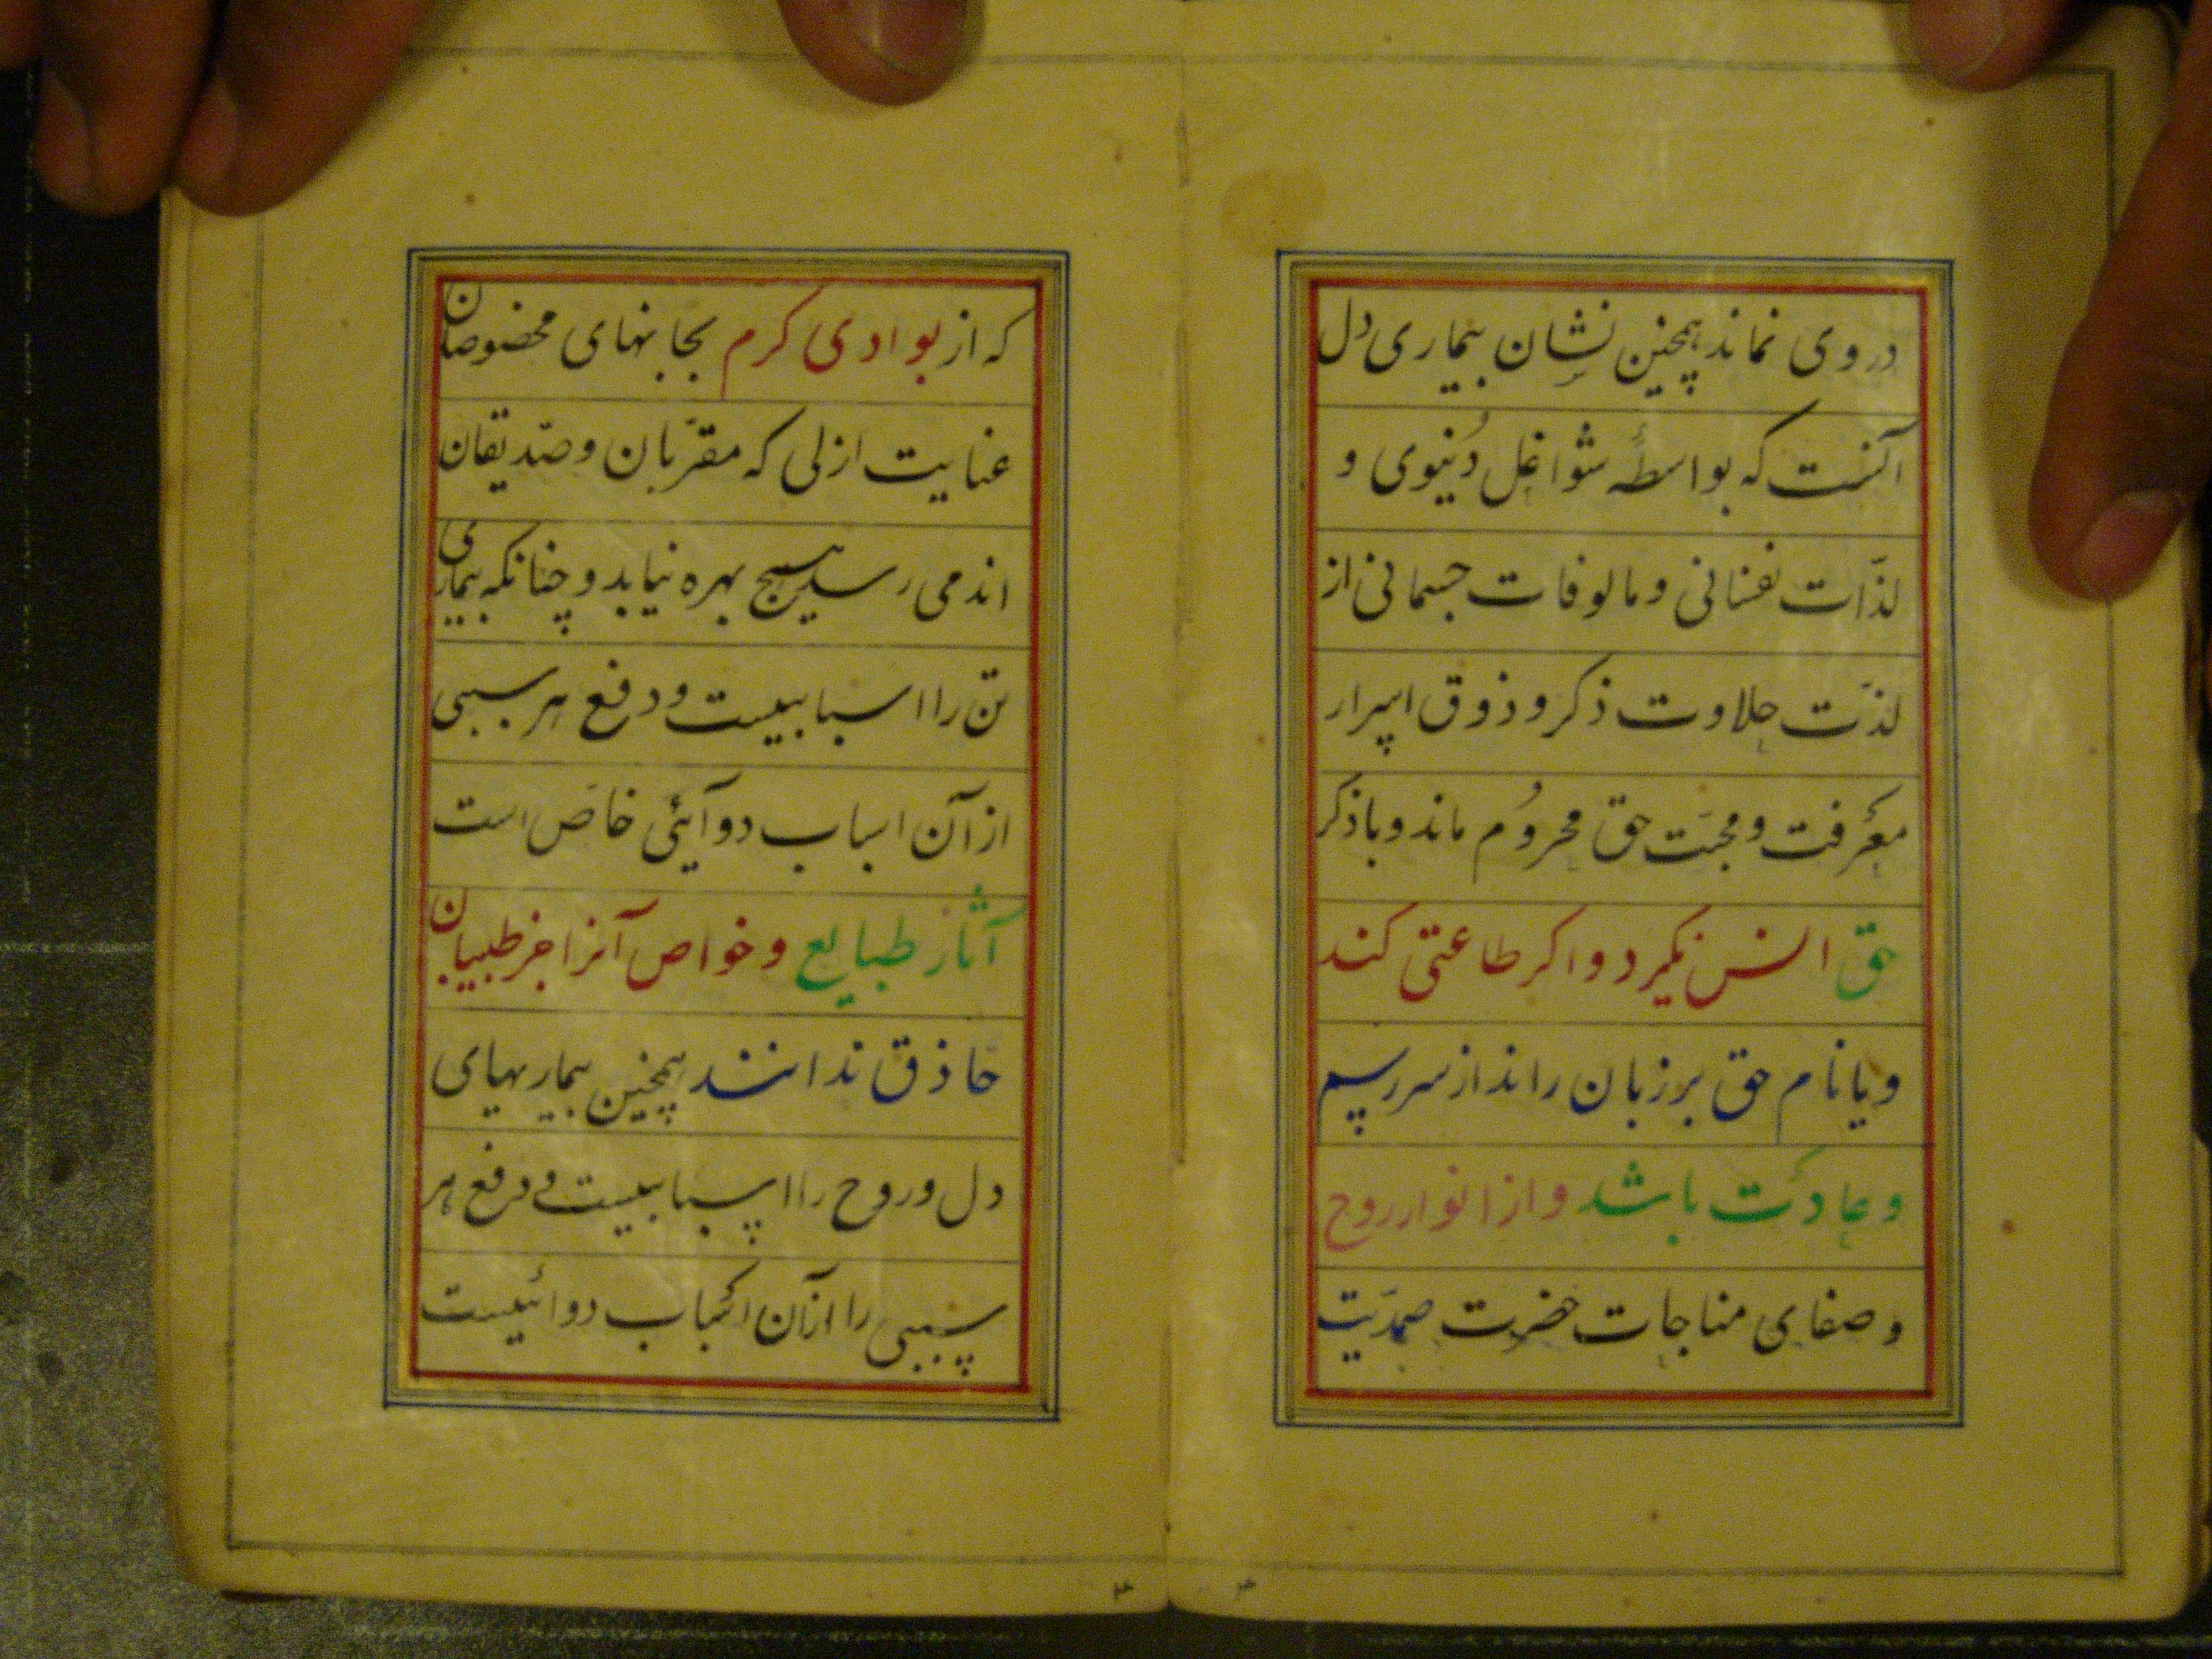 در وی نماند همچنین نشان بیماری دل
آنست که بواسطهٔ شواغل دُنیوی و
لذّات نفسانی و مالوفات جسمانی از
لذّت حلاوت ذکر و ذوق اسرار
معرفت و محبّت حق محرُوم ماند و با ذکر
حق انس نکیرد و اکر طاعتی کند
و یا نام حق بر زبان راند از سر رسم
و عادت باشد و از انوار روح
و صفای مناجات حضرت صمدیّت
که از بوادی کرم بجانهای مخصوصان
عنایت ازلی که مقرّبان و صدّیقان
اند می رسد هیچ بهره نیابد و چنانکه بیماری
تن را اسبابیست و دفع هر سببی
از آن اسباب دوآیئی خاصّ است
آثار طبایع و خواص آنرا جز طبیبان
حاذق ندانند همچنین بیماریهای
دل و روح را اسبابیست و دفع هر
سببی را ازآن اسباب دوائیست
۳
۴